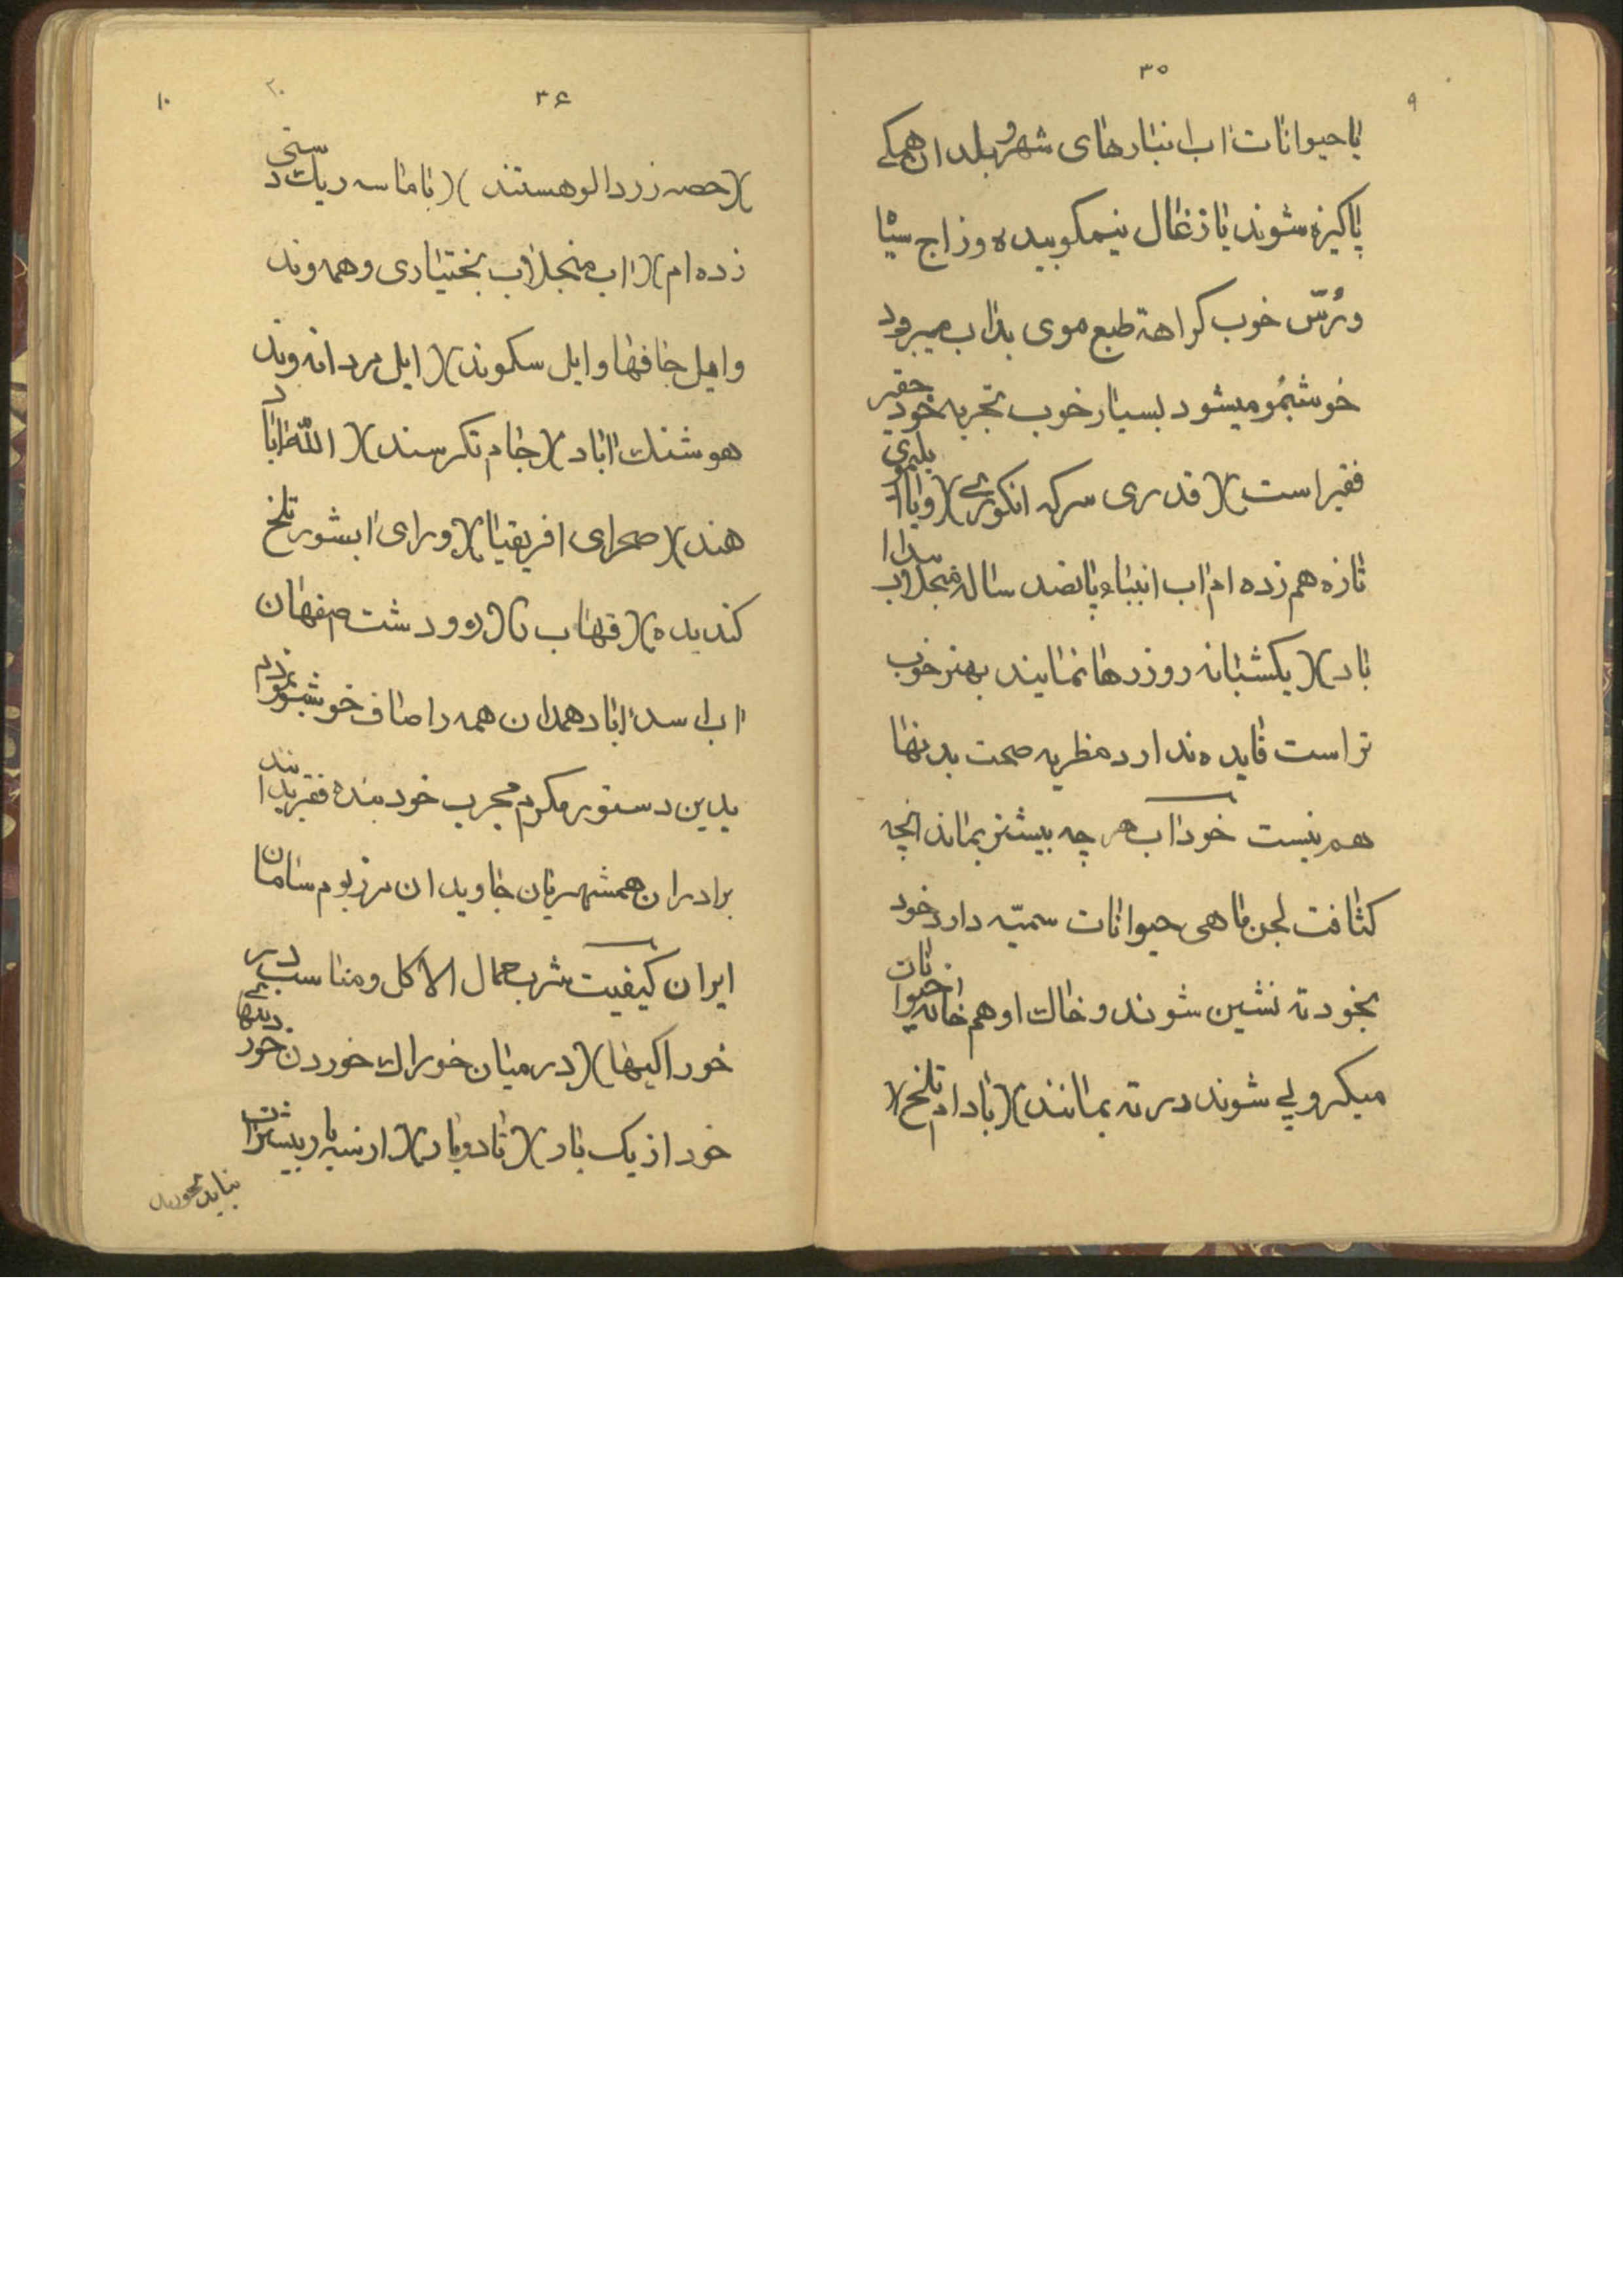 ۳۵
۹
یا حیوانات اب انبارهای شهر و بلدان همکے
پاکیزه شوند یا زغال نیمکوبیده و زاج سیا
و رُسّ خوب کراهة طبع موی بداب میرود
خوشبُو میشود بسیار خوب تجربه خود حقیر
فقیر است)( قدری سرکه انکوری)( ویا
تازه هم زده ام اب انبا پانصد ساله منجلاب
باد)( یکشبانه روز رها نمایند بهتر خوب
تر است فایده ندارد مظر به صحت بدنها
هم نیست خود آب هر چه بیشتر بماند انچه
کثافت لجن ماهی حیوانات سمیّه دارد خود
بخود ته نشین شوند و خاك او هم خانه حیوانات
میکروپی شوند در ته بمانند)( بادام تلخ)(
۳۶
۱۰
)(حصه زردالو هستند)( با ماسه ریك دستی
زده ام)( اب منجلاب بختیاری و همه وند
و ایل جافها و ایل سکوند)( ایل مردانه وند
هوشنك اباد)( جام تکرسند)( الله اباد
هند)( صحرای افریقیا)( ورای ابشور تلخ
کندیده)( قهاب رودشت صفهان
اب اسد اباد همدان همه را صاف خوشبو نمودم
بدین دستور مکرم مجرب خود بنده فقیر بدانند
برادران همشهریان جاویدان مرزبوم سامان
ایران کیفیت شرب حمال الاکل و مناسب در
خوراکیها)( در میان خوراك خوردن خود
خود از یک بار)( تا دو بار)( ارسه بار بیشتر
نباید بخورند